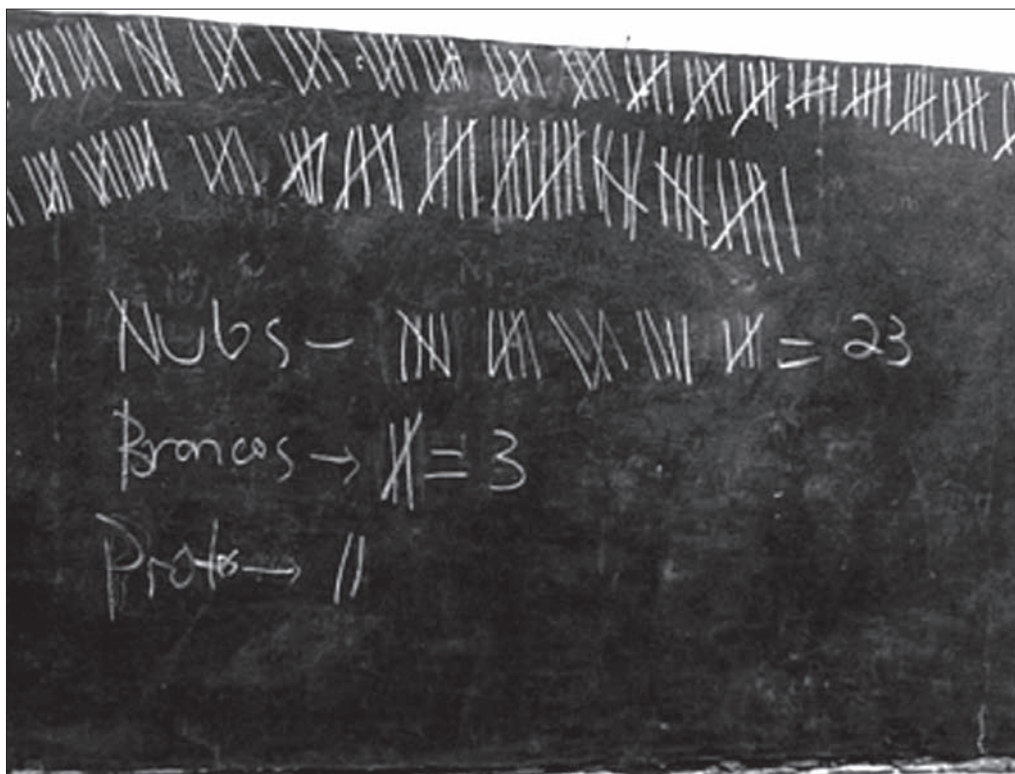 Nubs – = 23
Broncos → = 3
Proto → ||